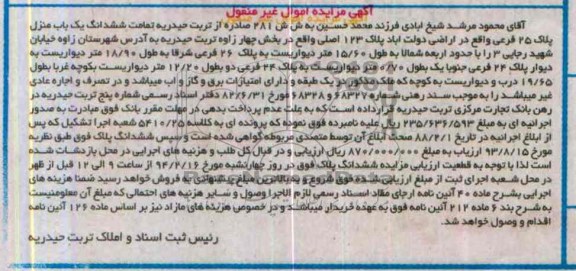 آگهی مزایده اموال غیر منقول
آقای محمود مرشد شیخ ابادی فرزند محمد حسین به ش ش 281 صادره از تربت حیدریه تمامت ششدانگ یک باب منزل
پلاک 25 فرعی واقع در اراضی دولت اباد پلاک 123 اصلی واقع در بخش چهار زاوه تربت حیدریه به آدرس شهرستان زاوه خیابان
شهید رجایی 3 را با حدود اربعه شمالا به طول 15/60 متر دیواریست به پلاک 26 فرعی شرقا به طول 18/90 متر دیواریست به
دیوار پلاک 24 فرعی جنوبا یک بطول 0/70 متر دیواریست به پلاک 24 فرعی دو بطول 12/20 متر دیواریست بکوچه غربا بطول
19/65 درب و دیواریست به کوچه که ملک مذکور دو یک طبقه و دارای امتیازات برق و گاز و آب میباشد و در تصرف و اجاره عادی
غیر میباشد را به موجب سند رهنی شماره 68327 و 68328 مورخ 82/6/31 دفتر اسناد رسمی شماره پنج تربت حیدریه در
رهن بانک تجارت مرکزی تربت حیدریه قرار داده است که به علت عدم پرداخت بدهی در مهلت مقرر بانک فوق مبادرت به صدور
اجرائیه ای به مبلغ 235/636/593 ریال علیه نامبرده فوق نموده که پرونده ای به کلاسه 5410/25 شعبه اجرا تشکیل که پس
از ابلاغ اجرائیه در تاریخ 88/4/1 صحت ابلاغ آن توسط متصدی مربوطه گواهی شده است و سپس ششدانگ پلاک فوق طبق نظریه
مورخ 93/8/15 ارزیاب به مبلغ 870/000/000 ریال ارزیابی و در قبال کل طلب و هزینه های اجرایی در محل بازداشت شده
است لذا با توجه به قطعیت ارزیابی مزایده ششدانگ پلاک فوق در روز چهارشنبه مورخ 94/2/16 از ساعت 9 الی 12 قبل از ظهر
در محل شعبه اجرای ثبت از مبلغ ارزیابی شده فوق شروع و به بالاترین مبلغ پیشنهادی به فروش خواهد رسید ضمنا هزینه های
اجرایی بشرح ماده 40 آئین نامه اجرای مفاد اسناد رسمی لازم الاجرا وصول و سایر هزینه های احتمالی که مبلغ آن معلوم نیست
به شرح بند 6 ماده 212 آئین نامه فوق به عهده خریدار میباشد و در خصوص هزینه های مازاد نیز بر اساس ماده 126 آئین نامه
اقدام و وصول خواهد شد.
رئیس ثبت اسناد و املاک تربت حیدریه